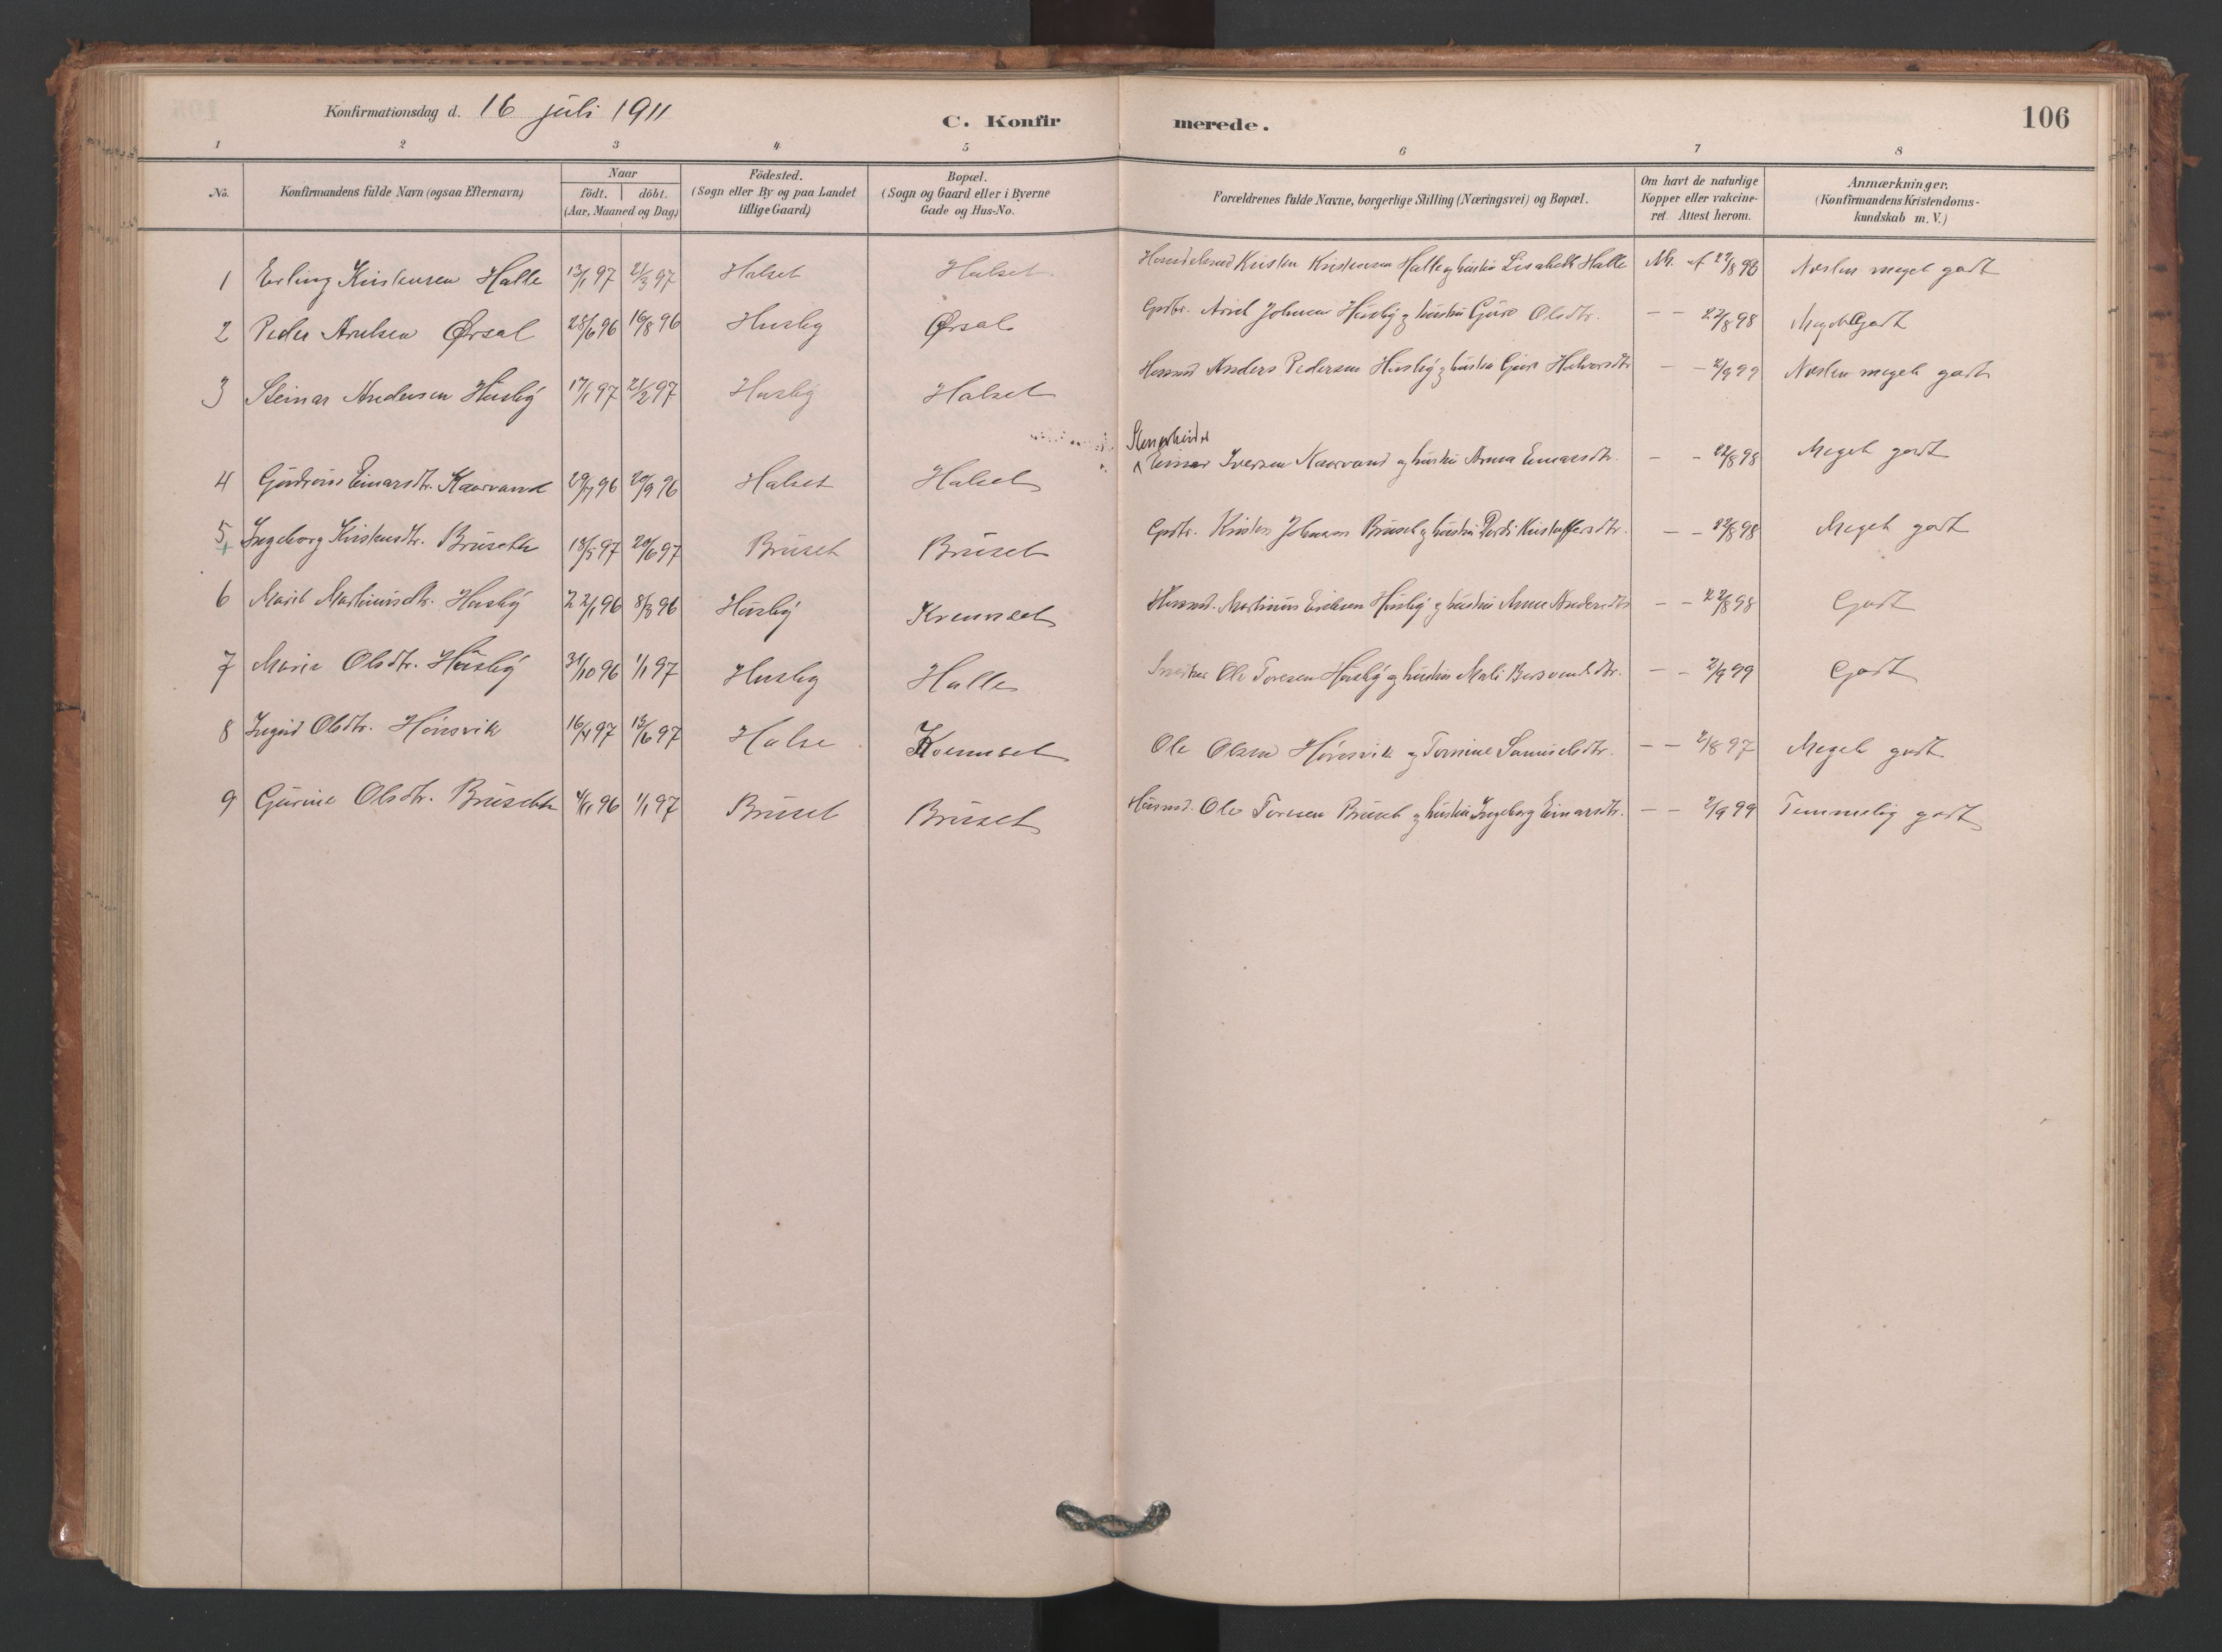 Konfirmationsdag d. 16 juli 1911
C. Konfirmerede.
106
1 2 3 4 5 6 7 8
No.
Konfirmandens fulde Navn (ogsaa Efternavn)
Naar
födt. döbt.
(Aar, Maaned og Dag)
Födested.
(Sogn eller By og paa Landet
tillige Gaard)
Bopæl.
(Sogn og Gaard eller i Byerne
Gade og Hus-No.
Forældrenes fulde Navne, borgerlige Stilling (Næringsvei) og Bopæl.
Om havt de naturlige
Kopper eller vakcine-
ret. Attest herom.
Anmærkninger.
(Konfirmandens Kristendoms-
kundskab m. V.)
1 Erling Kristensen Halle 13/1 97 21/3 97 Halset Halset Kristen Kristensen Halle og hustru Lisabeth Halle af 22/8 98 Næsten meget godt
2 Peder Arntsen Ørsal 28/6 96 16/8 96 Husby Ørsal Gbr. Arnt Johnsen Húsby og hústrú Gúro Olsdtr. — — 22/8 98 Meget Godt
3 Steinar Andersen Húsby 17/1 97 21/2 97 Husby Halset Anders Pedersen Húsby og hústrú Gúro Halvorsdtr — — 2/9 99 Næsten meget godt
Stenarbeider
4 Einarsdtr. Naarvand 29/7 96 20/9 96 Halset Halset Einar Iversen Naarvand og hústrú Anna Einarsdtr. — — 22/8 98 Meget godt
5 Ingeborg Kristensdtr. Brúseth 18/5 97 20/6 97 Brúset Brúset Kristen Johnsen Brúset og hústrú Kristoffersdtr. — — 22/8 98 Meget godt
6 Marit Martinúsdtr. Húsby 22/1 96 8/3 96 Húsby Húsmd. Martinús Eriksen Húsby og hústrú Anne Andersdtr — — 22/8 98 Godt
7 Marie Olsdtr. Húsby 31/10 96 1/1 97 Husby Halle Ole Toresen Húsby og hústrú Mali — — 2/9 99 Godt
8 Ingrid Olsdtr. Hönsvik 16/4 97 13/6 97 Halse Ole Olsen Hönsvik og Samúelsdtr. — — 2/8 97 Meget godt
9 Gúrine Olsdtr. Brúseth 4/11 96 1/1 97 Brúset Brúset Húsmd. Ole Toresen Brúset og hústrú Ingeborg Einarsdtr. — — 2/9 99 Temmelig godt